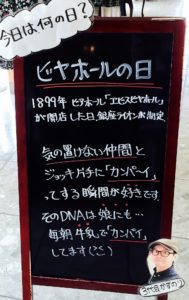 今日は何の日?
ビヤホールの日
1899年 ビヤホール「エビスビヤホール」
が開店した日。銀座ライオンが制定
気の置けない仲間と
ジョッキ片手に「カンパーイ」
ってする瞬間が好きです
そのDNAは娘にも…
毎朝牛乳で「カンパイ」
してます
3代目かずのり